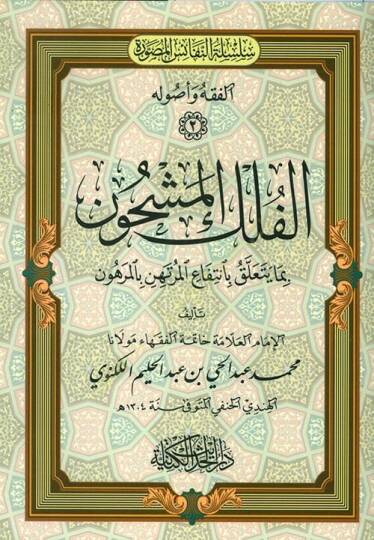 سلسلة النفائس المصورة
الفقه وأصوله
٢
الفُلك المشحون
بِمَا يَتعَلَّقُ بِانتِفَاع المُرْتَهِن بِالمَرهُون
تأليف
الإمام العلامة خاتمة الفقهاء مولانا
محمد عبد الحي بن عبد الحليم اللكنوي
الهندي الحنفي المتوفى سنة ١٣٠٤هـ